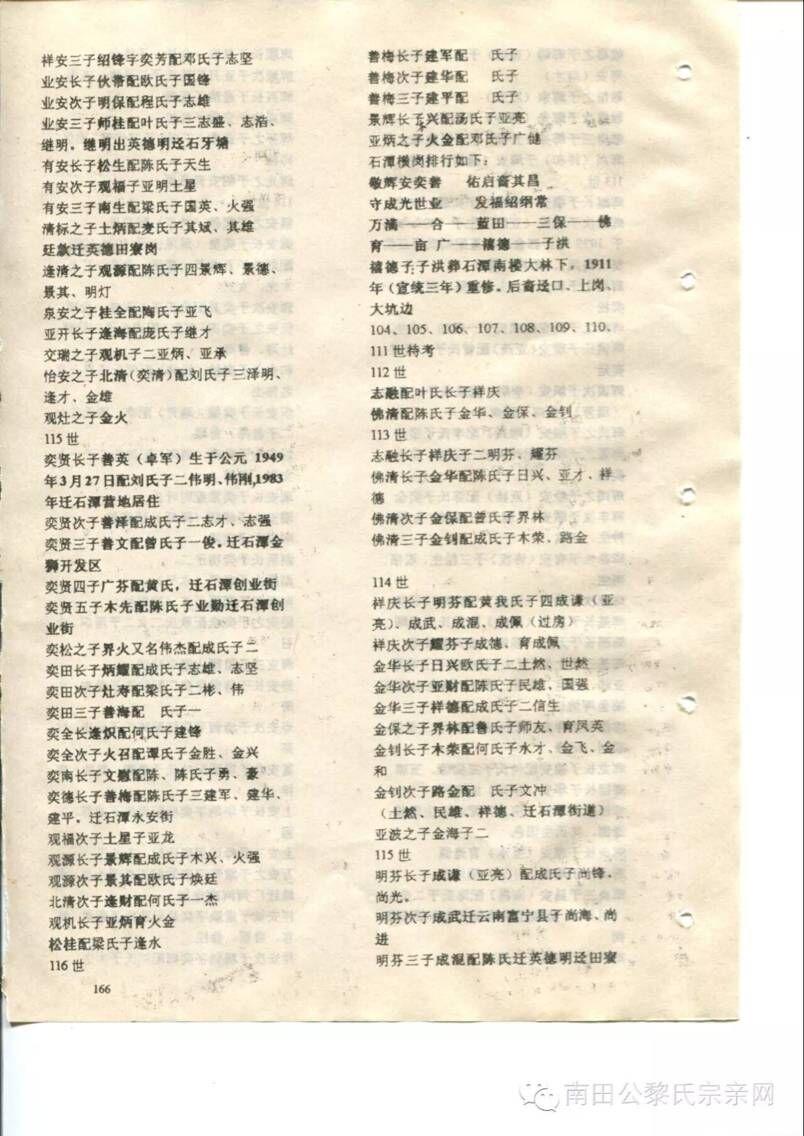 祥安三子绍锋字奕芳配邓氏子志坚
业安长子伙带配欧氏子国锋
业安次子明保配程氏子志雄
业安三子师桂配叶氏子三志盛、志浩、
继明。继明出英德明迳石牙塘
有安长子松生配陈氏子天生
有安次子观福子亚明土星
有安三子南生配梁氏子国英、火强
清标之子土炳配麦氏子其斌、其雄
廷歎迁英德田寮岗
逢清之子观源配陈氏子四景辉、景德、
景其、明灯
泉安之子桂全配陶氏子亚飞
亚开长子逢海配庞氏子继才
交瑞之子观机子二亚炳、亚承
怡安之子北清(奕清)配刘氏子三泽明、
逢才、金雄
观灶之子金火
115世
奕贤长子善英(卓军)生于公元 1949
年3月27日配刘氏子二伟明、伟刚,1983
年迁石潭营地居住
奕贤次子善泽配成氏子二志才、志强
奕贤三子善文配曾氏子一俊。迁石潭金
狮开发区
奕贤四子广芬配黄氏，迁石潭创业街
奕贤五子木先配陈氏子业勤迁石潭创
业街
奕松之子界火又名伟杰配成氏子二
奕田长子炳耀配成氏子志雄、志坚
奕田次子灶寿配梁氏子二彬、伟
奕田三子善海配 氏子一
奕全长逢炽配何氏子建锋
奕全次子火召配谭氏子金胜、金兴
奕南长子文慰配陈、陈氏子勇、豪
奕德长子善梅配陈氏子三建军、建华、
建平。迁石潭永安街
观福次子土星子亚龙
观源长子景辉配成氏子木兴、火强
观源次子景其配欧氏子焕廷
北清次子逢财配何氏子一杰
观机长子亚炳育火金
松桂配梁氏子逢水
116世
166
善梅长子建军配 氏子
善梅次子建华配 氏子
善梅三子建平配 氏子
景辉长子兴配汤氏子亚亮
亚炳之子火金配邓氏子广健
石潭横岗排行如下:
敬辉安奕善 佑启裔其昌
守成光世业 发福绍纲常
万满——合——蓝田——三保——佛
育——亩广——禧德——子洪
禧德子子洪葬石潭南楼大林下，1911
年(宣统三年)重修。后裔迳口、上岗、
大坑边
104、105、106、107、108、109、110、
111世待考
112世
志融配叶氏长子祥庆
佛清配陈氏子金华、金保、金钊
113世
志融长子祥庆子二明芬、耀芬
佛清长子金华配陈氏子日兴、亚才、祥
德
佛清次子金保配曾氏子界林
佛清三子金钊配成氏子木荣、路金
114世
祥庆长子明芬配黄我氏子四成谦(亚
亮)、成武、成混、成佩(过房)
祥庆次子耀芬子成德、育成佩
金华长子日兴欧氏子二土然、世然
金华次子亚财配陈氏子民雄、国强
金华三子祥德配成氏子二信生
金保之子界林配鲁氏子师友、育凤英
金钊长子木荣配何氏子水才、金飞、金
和
金钊次子路金配 氏子文冲
(土然、民雄、祥德、迁石潭街道)
亚波之子金海子二
115世
明芬长子成谦(亚亮)配成氏子尚锋、
尚光。
明芬次子成武迁云南富宁县子尚海、尚
进
明芬三子成混配陈氏迁英德明迳田寮
南田公黎氏宗亲网